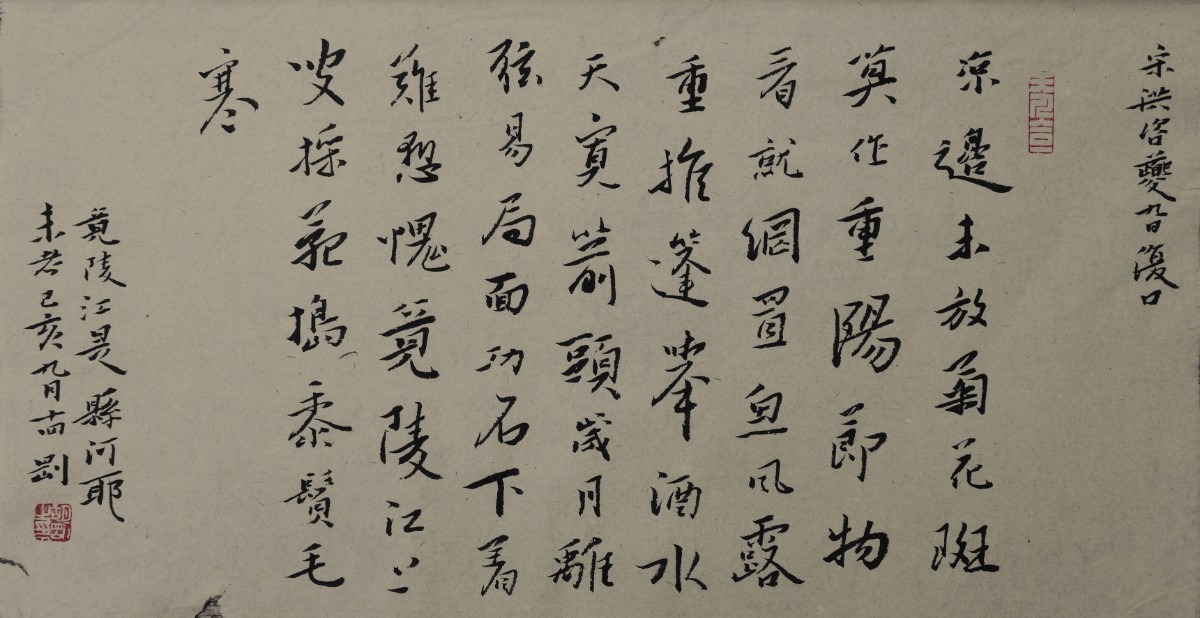 宋洪咨夔九日復口
涼邊未放菊花斑
莫作重陽節物
看就網買魚風露
重推篷舉酒水
天寬箭頭歲月離
弦易局面功名下着
難愁愧竟陵江上
叟採搗黍鬢毛
寒
竟陵江是縣河耶
未考己亥九月十四